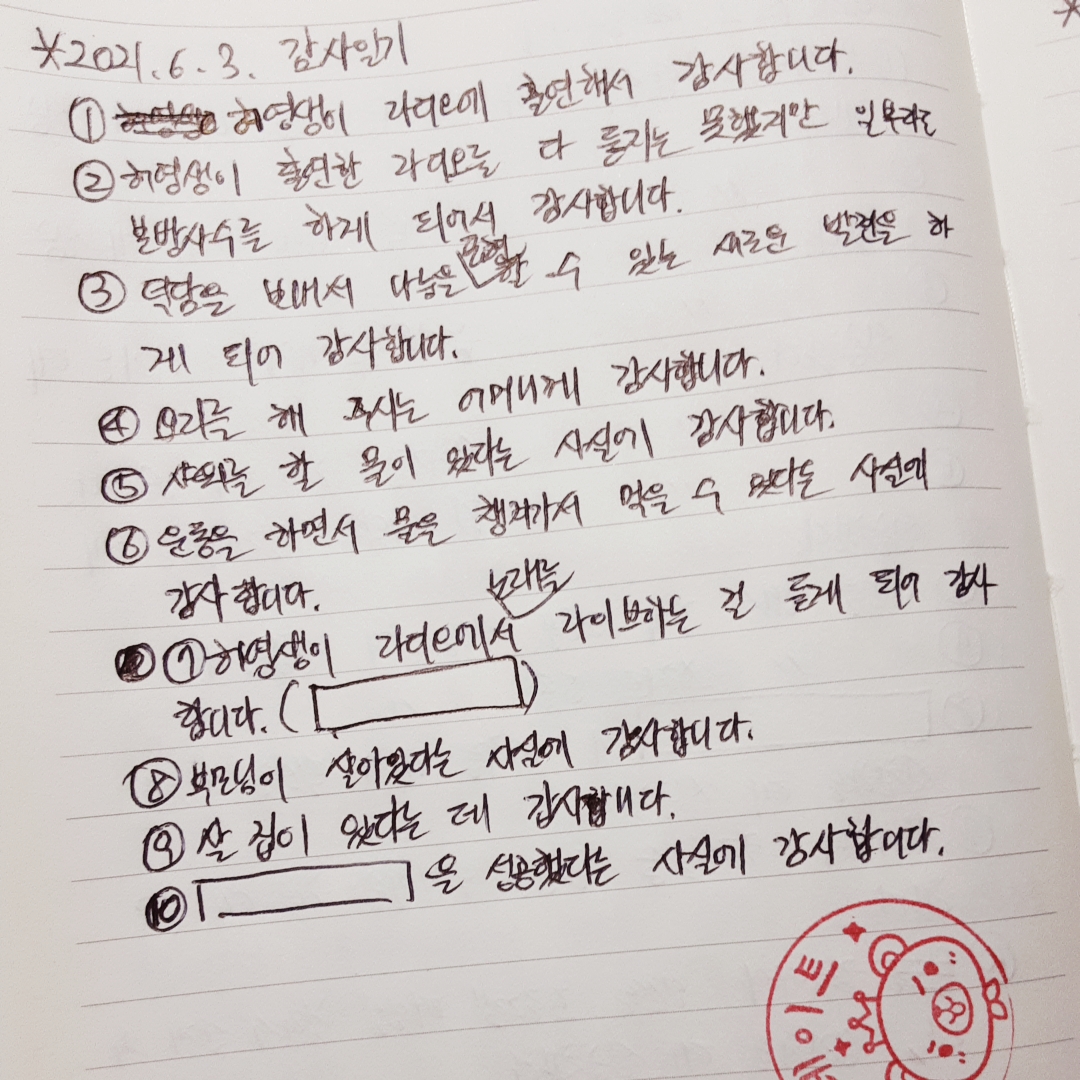 *2021.6.3. 감사일기
① 허영생이 라디오에 출연해서 감사합니다.
② 허영생이 출연한 라디오를 다 듣지는 못했지만 일부라도
본방사수를 하게 되어서 감사합니다.
③ 덕담을 보내서 나눔을 실현할 수 있는 새로운 발견을 하
게 되어 감사합니다.
④ 요리를 해 주시는 어머니께 감사합니다.
⑤ 샤워를 할 물이 있다는 사실에 감사합니다.
⑥ 운동을 하면서 물을 챙겨가서 먹을 수 있다는 사실에
감사합니다.
⑦ 허영생이 라디오에서 노래를 라이브하는 걸 듣게 되어 감사
합니다. ( )
⑧ 부모님이 살아있다는 사실에 감사합니다.
⑨ 살 집이 있다는 데 감사합니다.
⑩ 을 성공했다는 사실에 감사합니다.